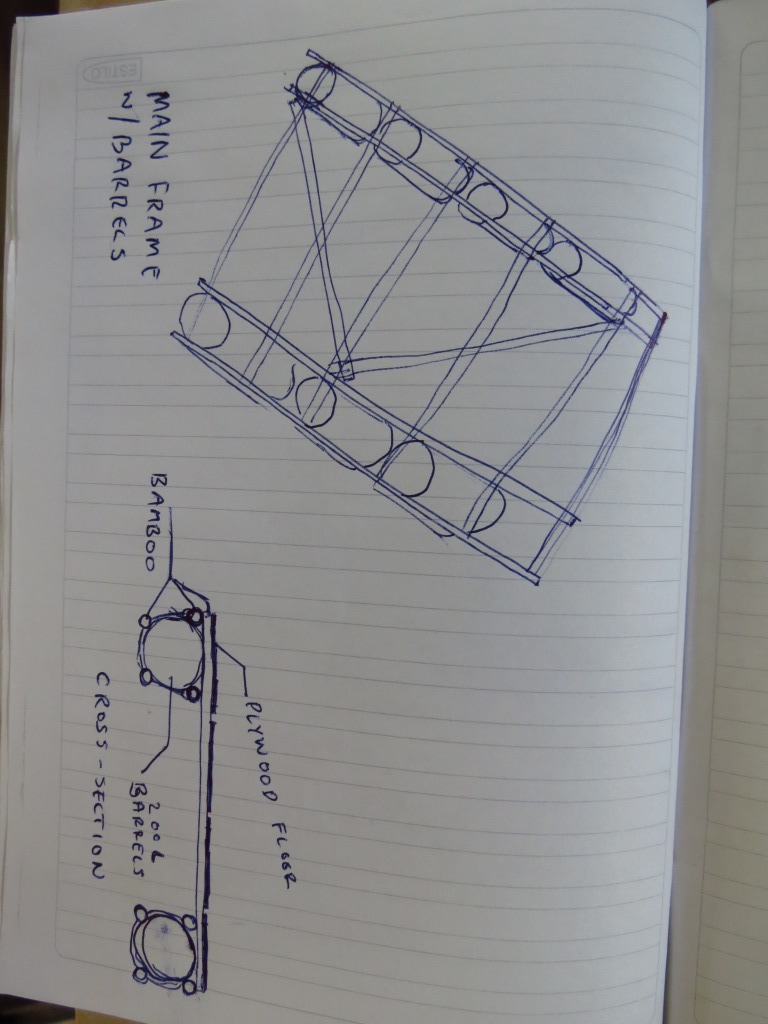 ESTILO
MAIN FRAME
W/ BARRELS
BAMBOO
PLYWOOD FLOOR
200L
BARRELS
CROSS-SECTION